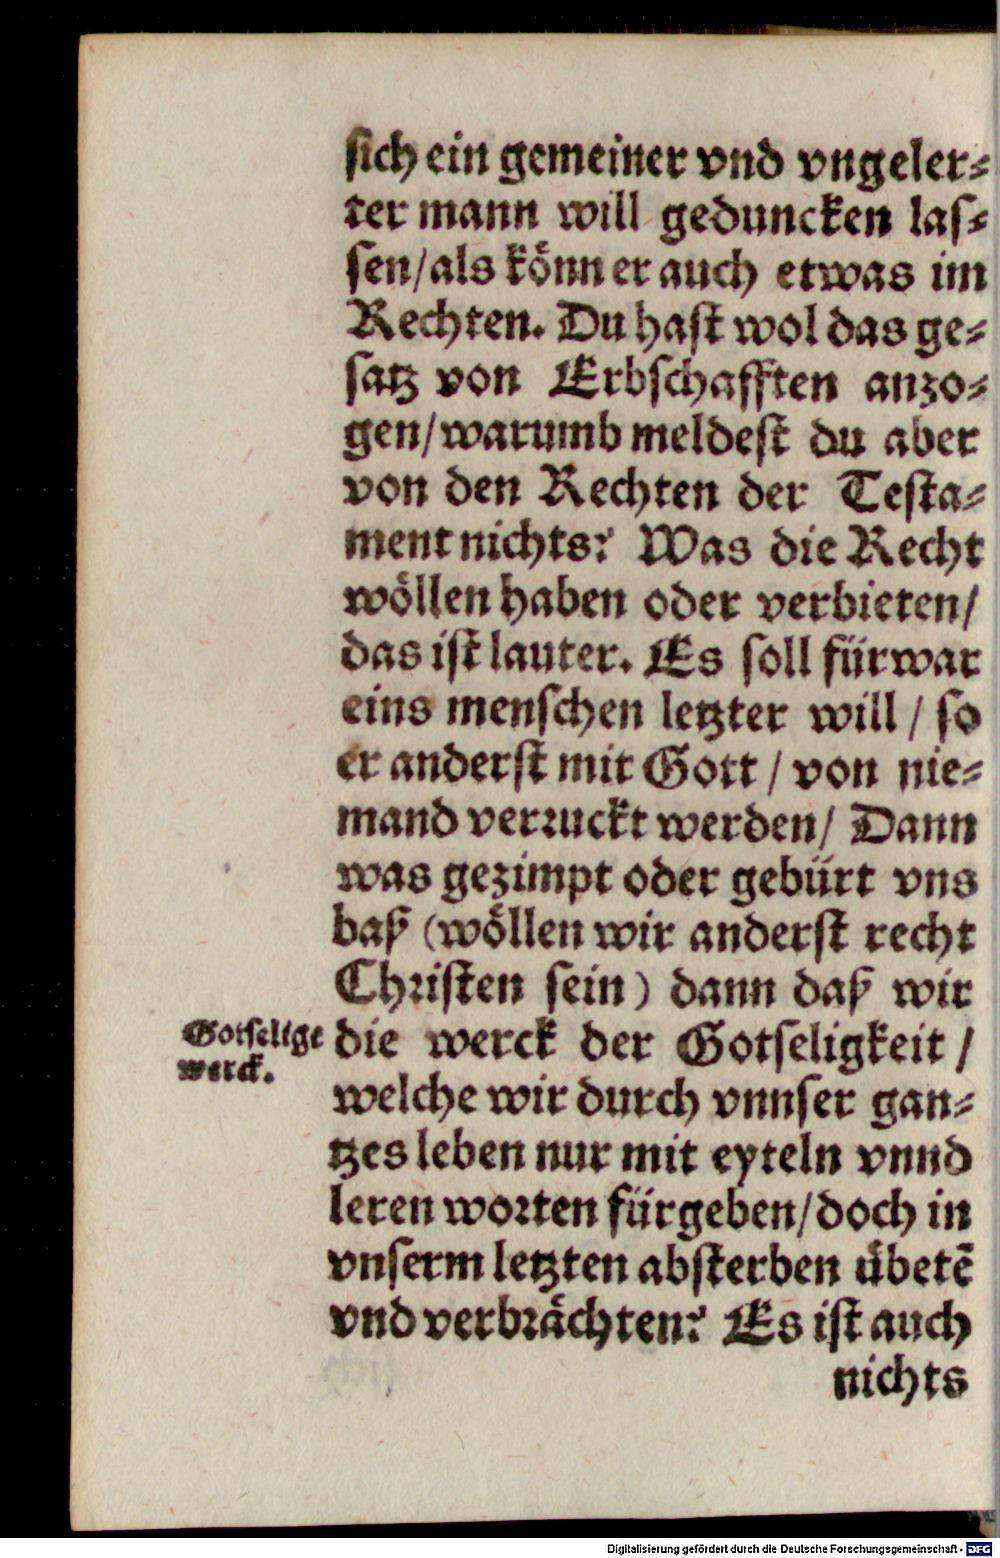 sich ein gemeiner vnd vngeler⸗
ter mann will geduncken las⸗
sen/als koͤnn er auch etwas im
Rechten. Du hast wol das ge⸗
satz von Erbschafften anzo⸗
gen/warumb meldest du aber
von den Rechten der Testa⸗
ment nichts? Was die Recht
woͤllen haben oder verbieten/
das ist lauter. Es soll fürwar
eins menschen letzter will / so
er anderst mit Gott / von nie⸗
mand verruckt werden/ Dann
was gezimpt oder gebürt vns
baß (woͤllen wir anderst recht
Christen sein) dann daß wir
Gotselige
werck.
die werck der Gotseligkeit /
welche wir durch vnnser gan⸗
tzes leben nur mit eyteln vnnd
leren worten fürgeben/doch in
vnserm letzten absterben uͤbetē
vnd verbraͤchten? Es ist auch
nichts
Digitalisierung gefördert durch die Deutsche Forschungsgemeinschaft - DFG